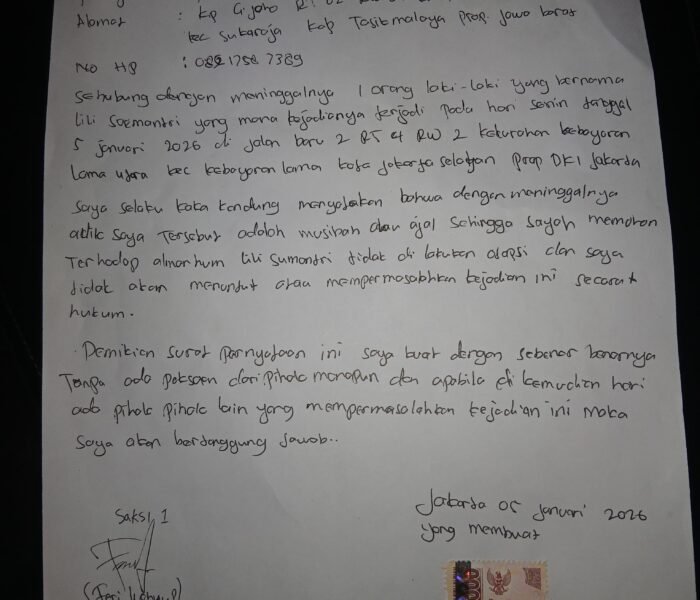 Alamat : kp Cijoho RT 02
kec sukaraja kab Tasikmalaya prop. jawa barat
No HP : 082 1758 7389
Sehubung dengan meninggalnya 1 orang laki-laki yang bernama
Lili Soemantri yang mana kejadianya terjadi pada hari senin tanggal
5 januari 2026 di jalan baru 2 RT 4 RW 2 kelurahan kebayoran
lama utara kec kebayoran lama kota jakarta selatan prop DKI Jakarda
Saya selaku kaka kandung menyatakan bahwa dengan meninggalnya
adik saya Tersebut adalah musibah dan ajal sehingga sayah memohon
Terhadap almarhum lili sumantri tidak di lakukan otopsi dan saya
tidak akan menuntut atau mempermasalahkan kejadian ini secara
hukum.
Demikian surat pernyataan ini saya buat dengan sebenar benarnya
Tanpa ada paksaan dari pihak manapun dan apabila di kemudian hari
ada pihak pihak lain yang mempermasalahkan kejadian ini maka
Saya akan bertanggung jawab..
Jakarda 05 januari 2026
Saksi 1
yang membuat